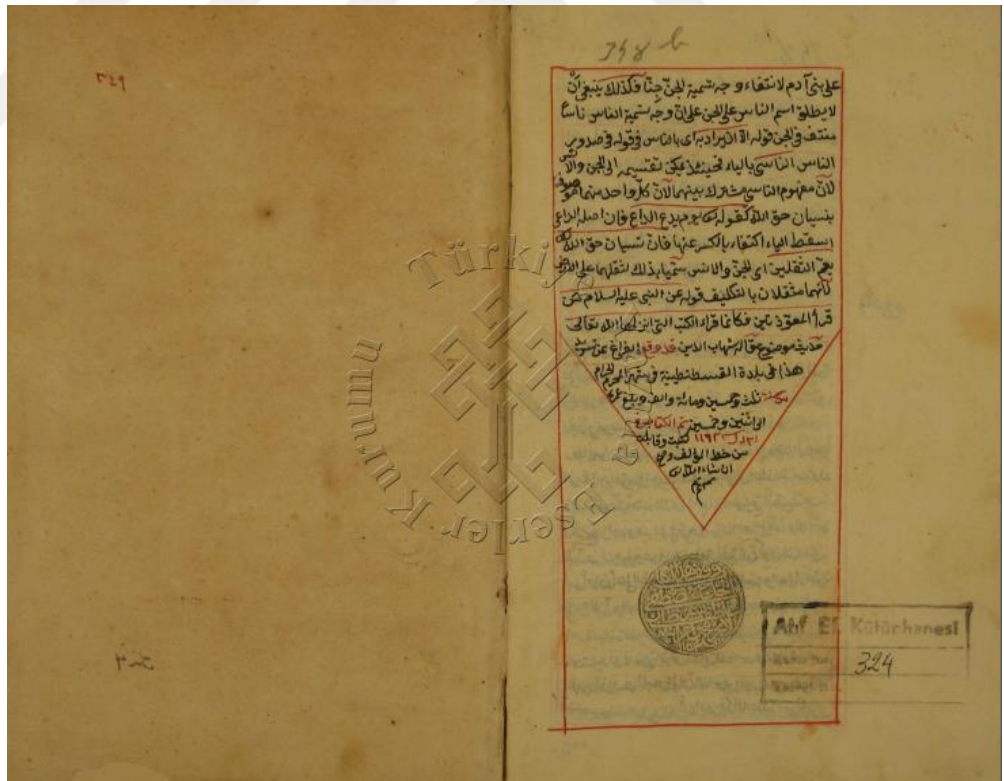 348 b
على بنى آدم لانتفاء وجه تسمية الجنّ جنّا فكذلك ينبغى أن
لا يطلق اسم الناس على الجن على انّ وجه تسمية الناس ناسا
منتف فى الجن قوله الا ان يراد به اى بالناس فى قوله فى صدور
الناس الناسى بالياء فحينئذ يمكن تقسيمه الى الجن والانس
لانّ مفهوم الناسى مشترك بينهما لانّ كلّ واحد منهما موصوف
بنسيان حق الله كقوله تعالى يوم يدع الداع فان اصله الداعى
اسقط الياء اكتفاء بالكسر عنها فانّ نسيان حق الله
يعمّ الثقلين اى الجنّ والانس سمّيا بذلك لثقلهما على الارض
لأنهما مثقلان بالتكليف قوله عن النبى عليه السلام من
قرأ المعوّذتين فكانما قراء الكتب التى انزلها الله تعالى
حديث موضوع قاله شهاب الدين قد وقع الفراغ عن
هذا فى بلدة القسطنطينية فى شهر المحرم الحرام
ثلث وخمسين ومائة والف وبلغ
الى اثنين وخمسين تم الكتاب
١١٩٢ كتبت وقابلت
من خط المؤلف
ان شاء الله
٣٤٩
Türkiye
Yazma
Eserler Kurumu
Atıf Ef. Kütüphanesi
324